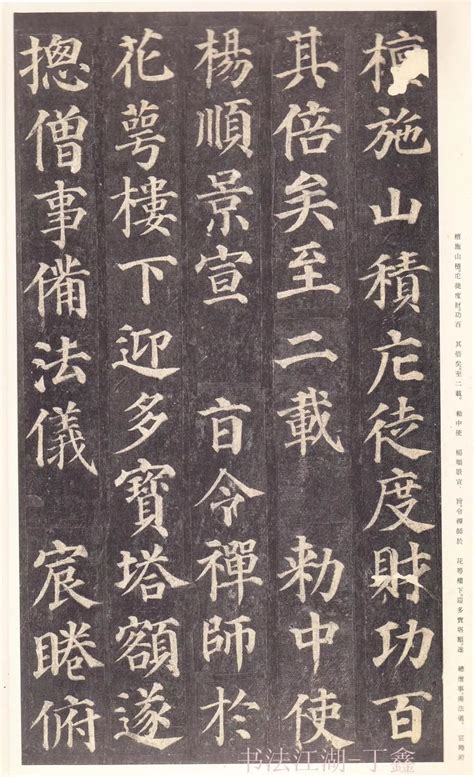 檀施山積庀徒度財功百 其倍矣。至二載，勅中使 楊順景宣 旨令禪師於 花萼樓下迎多寶塔額遂 總僧事備法儀，宸睠俯
檀施山積庀徒度財功百
其倍矣至二載 勅中使
楊順景宣 旨令禪師於
花萼樓下迎多寶塔額遂
揔僧事備法儀 宸睠俯
书法江湖-丁鑫